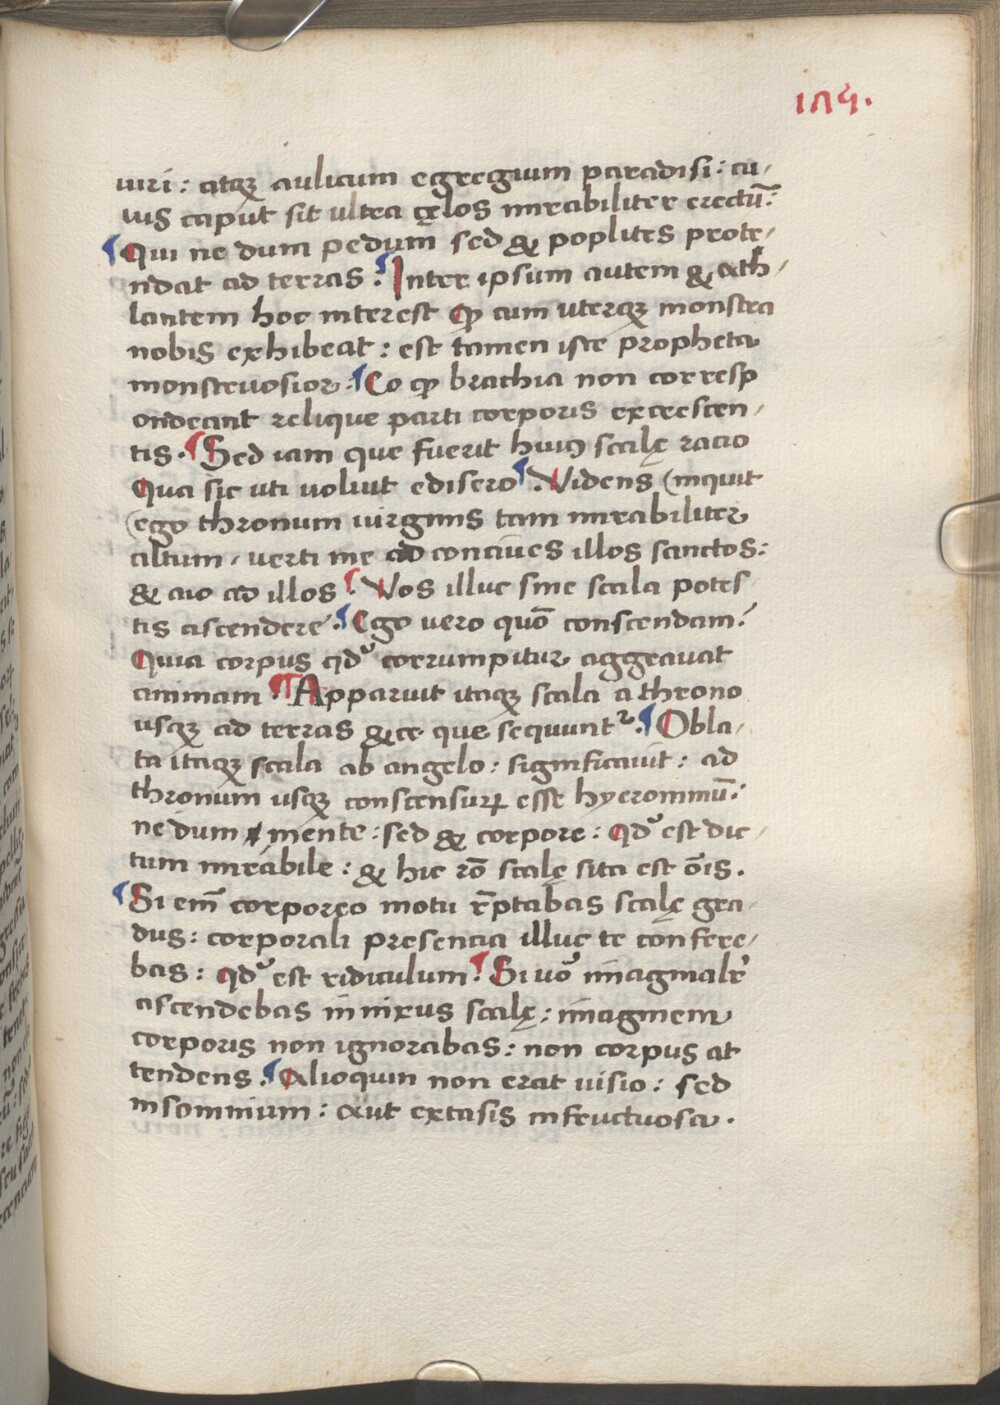 175.
uiri : atqꝫ aulicum egregium paradisi : cu-
ius caput sit ultra cęlos mirabiliter erectũ :
¶ Qui ne dum pedum sed & poplites prote-
ndat ad terras . ¶ Inter ipsum autem & ath-
lantem hoc interest ꝙ cum uterqꝫ monstra
nobis exhibeat : est tamen iste propheta
monstruosior . ¶ Eo ꝙ brachia non corresp
ondeant relique parti corporis excrescen-
tis . ¶ Sed iam que fuerit huiꝰ scalę racio
Qua sic uti uoluit edisero . ¶ Videns (inquit
(ego thronum uirginis tam mirabiliter
altum , uerti me ad conciues illos sanctos :
& aio ad illos . ¶ Vos illuc sine scala potes
tis ascendere . ¶ Ego uero quõ conscendam ?
Quia corpus qd' corrumpitur aggrauat
animam . ¶ Apparuit itaqꝫ scala a throno
usqꝫ ad terras &ce que sequunt᷑ . ¶ Obla-
ta itaqꝫ scala ab angelo : significauit : ad
thronum usqꝫ conscensurꝝ esse hyeronimũ :
ne dum mente : sed & corpore : Qd' est dic-
tum mirabile : & hic rõ scalę sita est õis .
¶ Si em̃ corporeo motu r̃ptabas scalę gra-
dus : corporali presencia illuc te confere-
bas : qd' est ridiculum . ¶ Si uõ imaginalr̃
ascendebas innixus scalę : imaginem
corporis non ignorabas : non corpus at
tendens . ¶ Alioquin non erat uisio : sed
insomnium : aut extasis infructuosa .